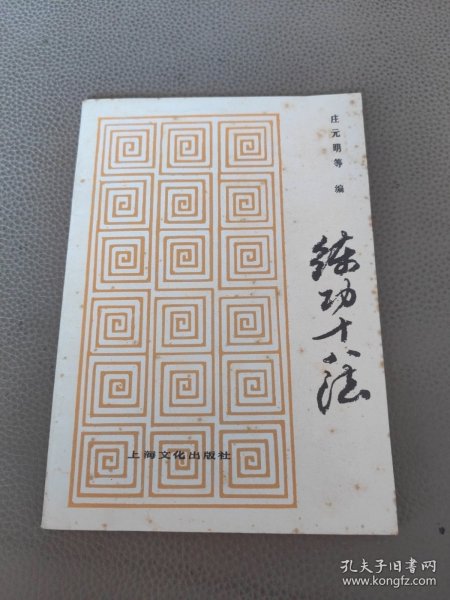 庄元明等 编
练功十八法
上海文化出版社
孔夫子旧书网
www.kongfz.com